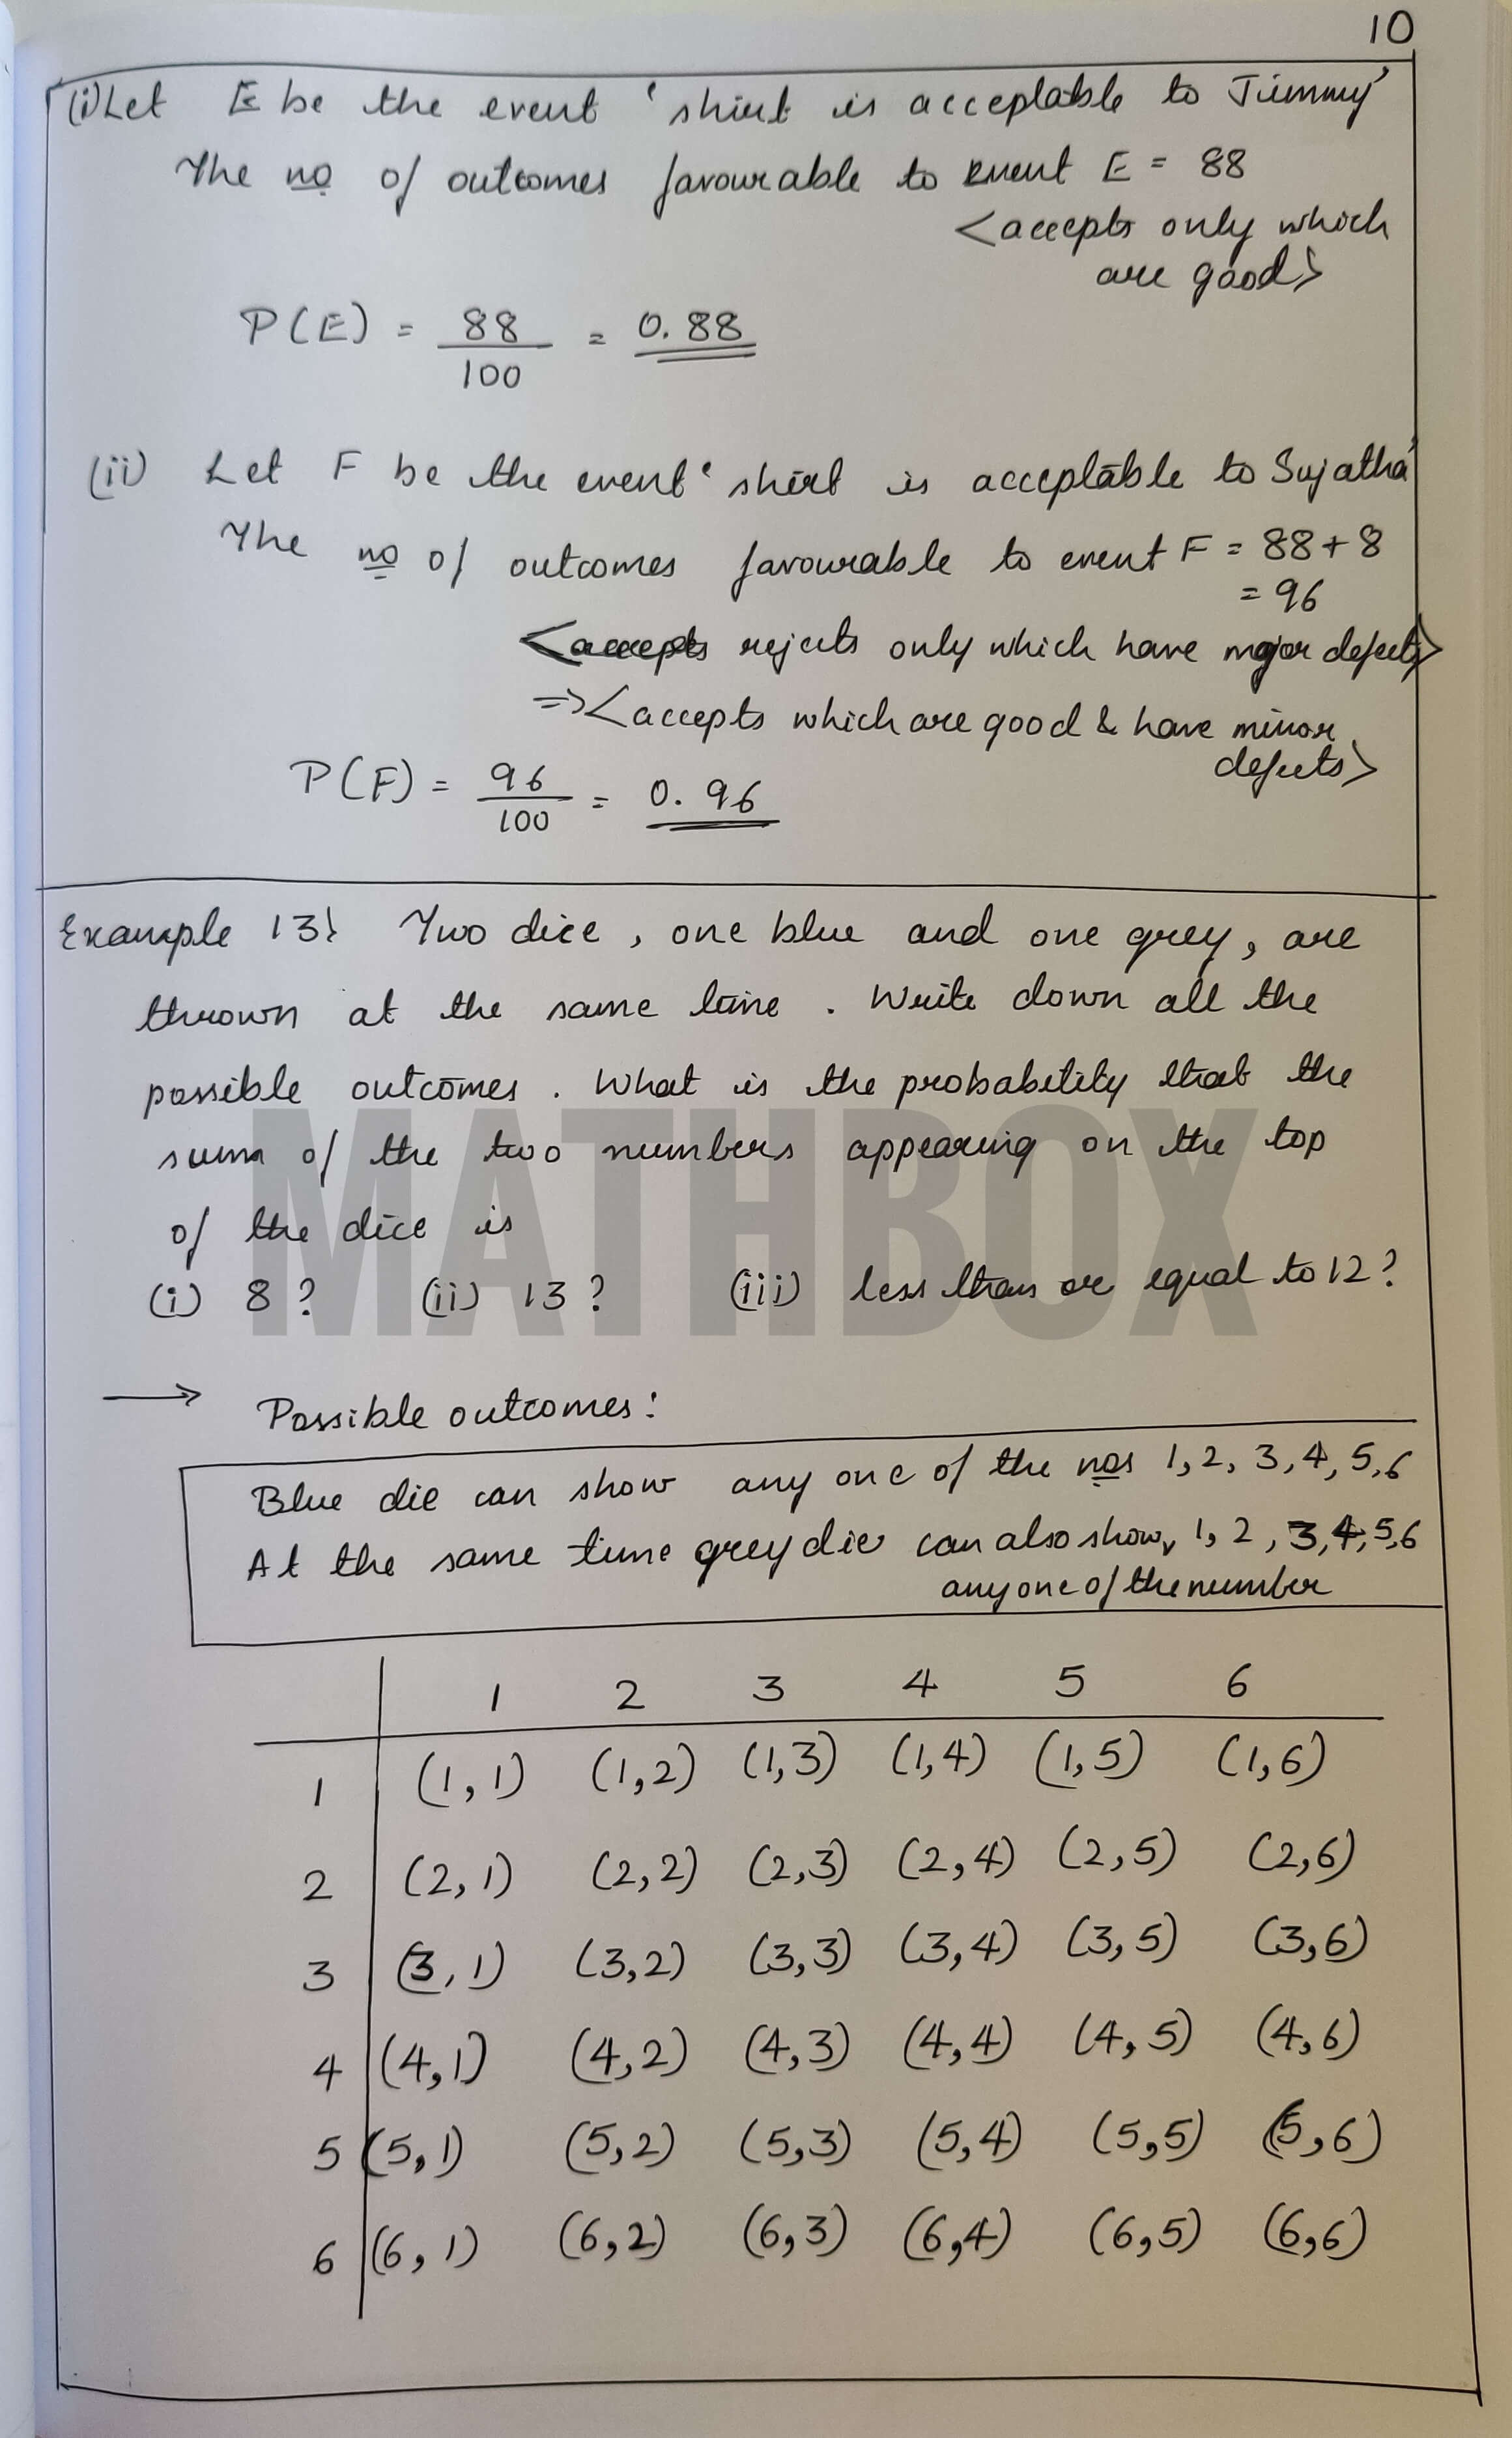 10
(i) Let E be the event 'shirt is acceptable to Jimmy'
The no of outcomes favourable to event E = 88
<accepts only which
are good>
P(E) = 88/100 = 0.88
(ii) Let F be the event 'shirt is acceptable to Sujatha'
The no of outcomes favourable to event F = 88+8
= 96
<accepts rejects only which have major defects>
=> <accepts which are good & have minor
defects>
P(F) = 96/100 = 0.96
Example 13} Two dice, one blue and one grey, are
thrown at the same time. Write down all the
possible outcomes. What is the probability that the
sum of the two numbers appearing on the top
of the dice is
(i) 8? (ii) 13? (iii) less than or equal to 12?
MATHBOX
→ Possible outcomes:
Blue die can show any one of the nos 1,2,3,4,5,6
At the same time grey die can also show, 1,2,3,4,5,6
any one of the number
1 2 3 4 5 6
1 (1,1) (1,2) (1,3) (1,4) (1,5) (1,6)
2 (2,1) (2,2) (2,3) (2,4) (2,5) (2,6)
3 (3,1) (3,2) (3,3) (3,4) (3,5) (3,6)
4 (4,1) (4,2) (4,3) (4,4) (4,5) (4,6)
5 (5,1) (5,2) (5,3) (5,4) (5,5) (5,6)
6 (6,1) (6,2) (6,3) (6,4) (6,5) (6,6)